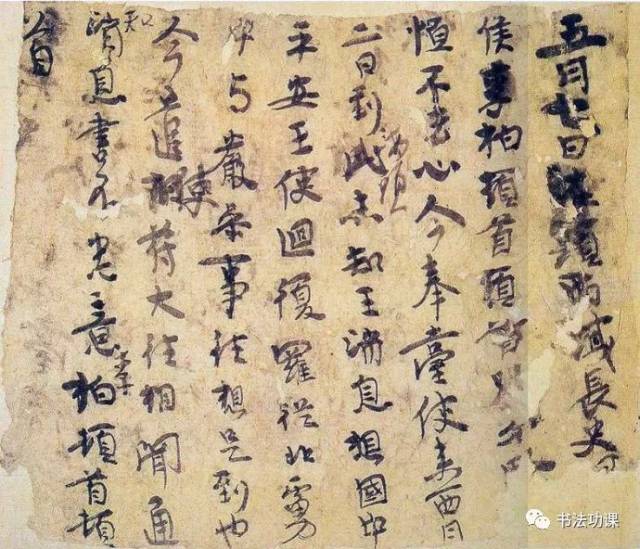 五月七日海頭西域長史
侯李柏頓首頓首別
恒不去心今奉臺使來西月
二日到此海頭未知王消息想國中
平安王使迴復羅從北虜
中與嚴參事往想是到也
今遣使符大往相聞通
知消息書不悉意李柏頓首頓
首
书法功课